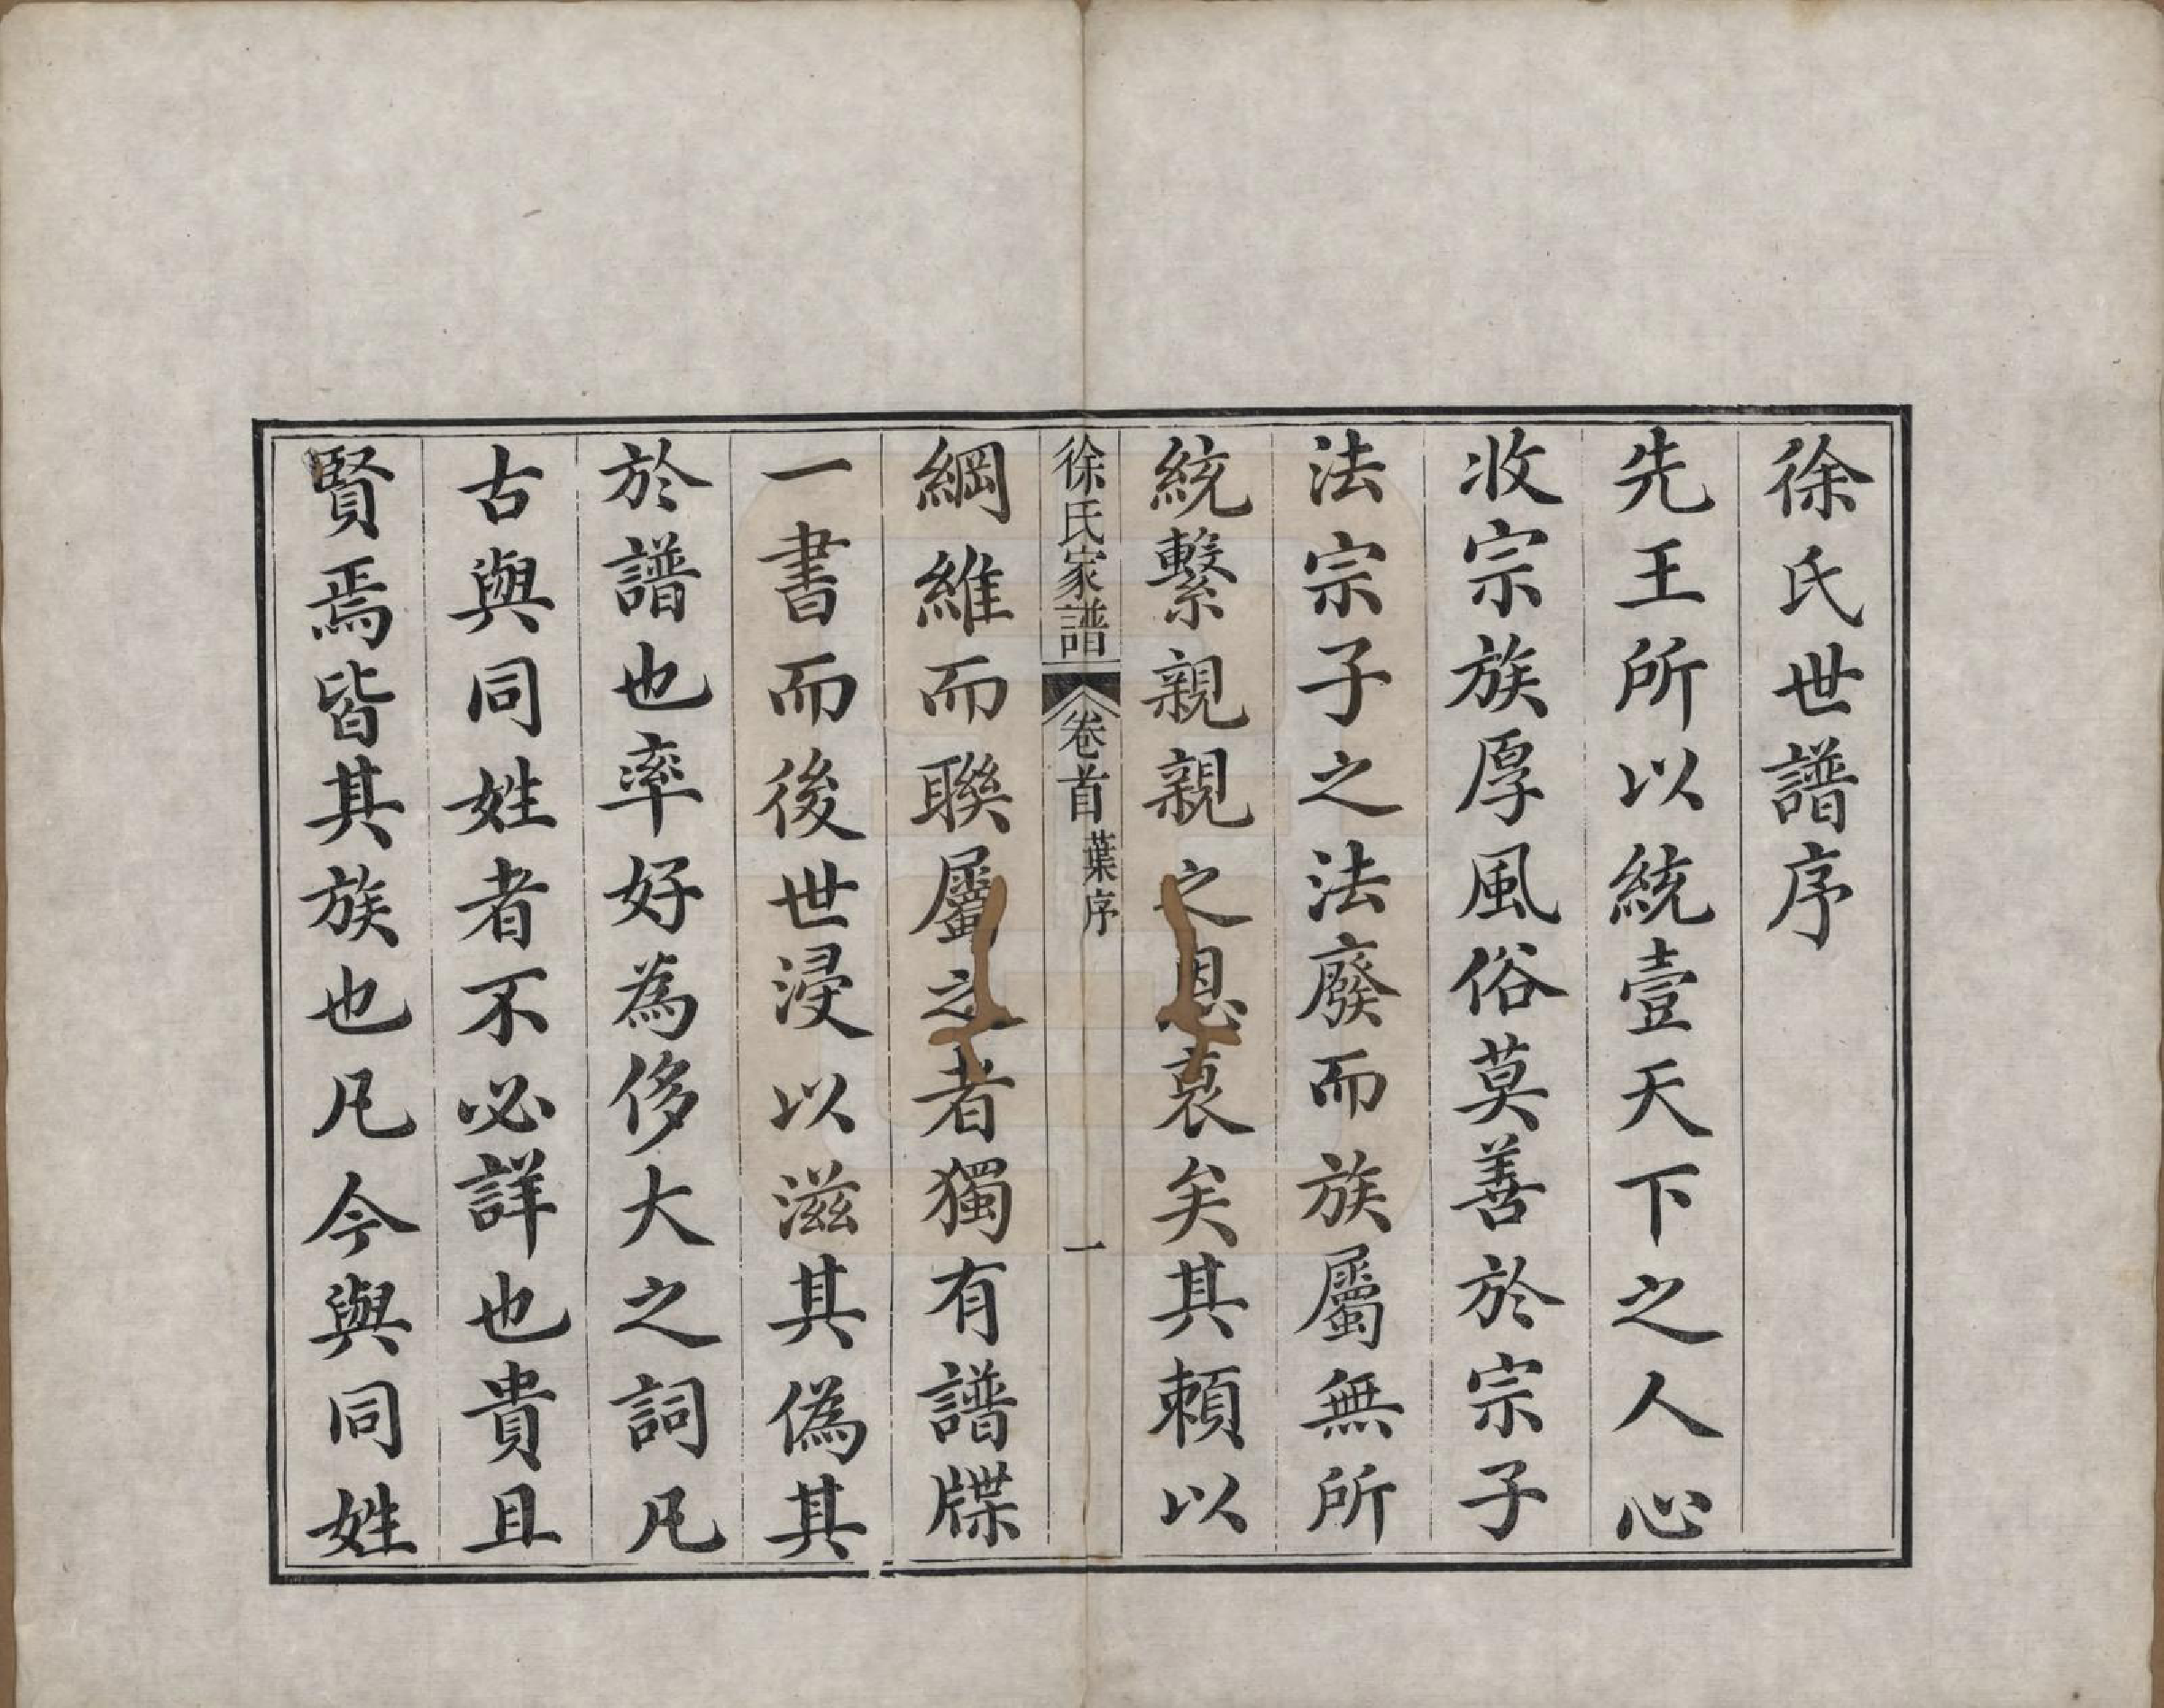 徐氏世譜序
先王所以統壹天下之人心
收宗族厚風俗莫善於宗子
法宗子之法廢而族屬無所
統繫親親之恩衰矣其頼以
徐氏家譜 卷首 葉序 一
綱維而聯屬之者獨有譜牒
一書而後世浸以滋其偽其
於譜也率好為侈大之詞凡
古與同姓者不必詳也貴且
賢焉皆其族也凡今與同姓